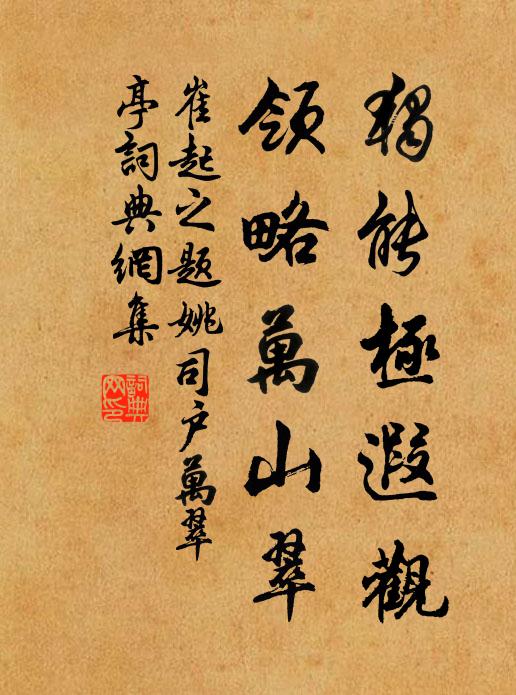 獨能極遐觀
領略萬山翠
崔起之題姚司户萬翠
亭詞典網集
詞典
网印